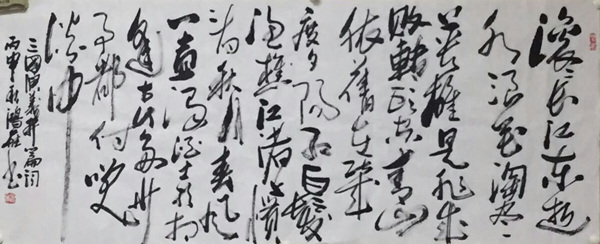 滚长江东逝
水浪花淘尽
英雄是非成
败转头空青山
依舊在几
度夕阳红白髮
渔樵江渚上惯
看秋月春风
一壶浊酒喜相
逢古今多少
事都付笑
谈中
三國演義开篇词
丙申秋鴻 书